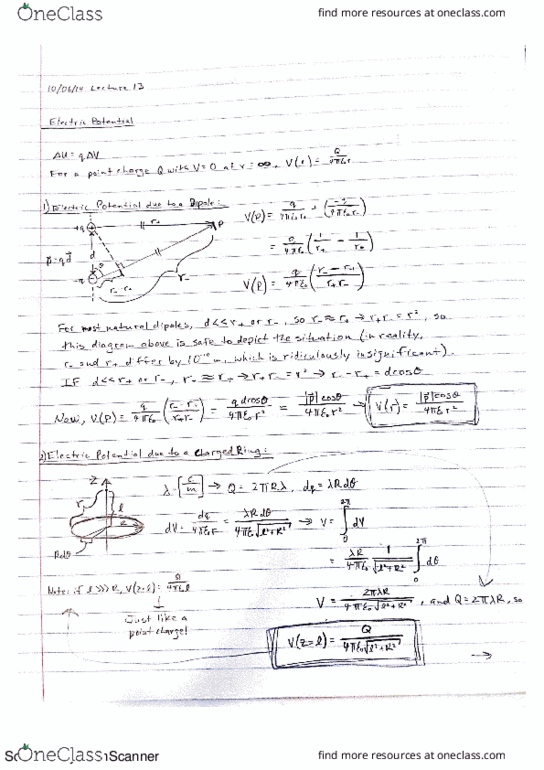 OneClass find more resources at oneclass.com
Lecture 13
Electric Potential
ΔU = qΔV
For a point charge Q with V=0 at r=∞, V(r) = Q/4πε₀r
1) Electric Potential due to a Dipole:
+q r₊ P
p⃗=qd⃗ d
-q θ r₋
r₋-r₊
V(P) = q/4πε₀r₊ + (-q/4πε₀r₋)
= q/4πε₀ (1/r₊ - 1/r₋)
V(P) = q/4πε₀ (r₋-r₊/r₊r₋)
For most natural dipoles, d<<r₊ or r₋, so r₋≈r₊ → r₊r₋=r², so
this diagram above is safe to depict the situation (in reality,
r₋ and r₊ differ by 10⁻¹⁰ m, which is ridiculously insignificant).
IF d<<r₊ or r₋, r₊≈r₋ → r₊r₋=r² → r₋-r₊ = dcosθ
Now, V(P) = q/4πε₀ (r₋-r₊/r₊r₋) = qdcosθ/4πε₀r² = |p⃗|cosθ/4πε₀r² → V(r) = |p⃗|cosθ/4πε₀r²
2) Electric Potential due to a Charged Ring:
λ=[C/m] → Q=2πRλ, dq=λRdθ
Z r l R
Rdθ
dV = dq/4πε₀r = λRdθ/4πε₀√l²+R² → V = ∫₀^2π dV
= λR/4πε₀ 1/√l²+R² ∫₀^2π dθ
Note: if l>>>R, V(z=l) = Q/4πε₀l
V = 2πλR/4πε₀√l²+R², and Q=2πλR, so
Just like a
point charge!
V(z=l) = Q/4πε₀√l²+R²
→
OneClass Scanner find more resources at oneclass.com